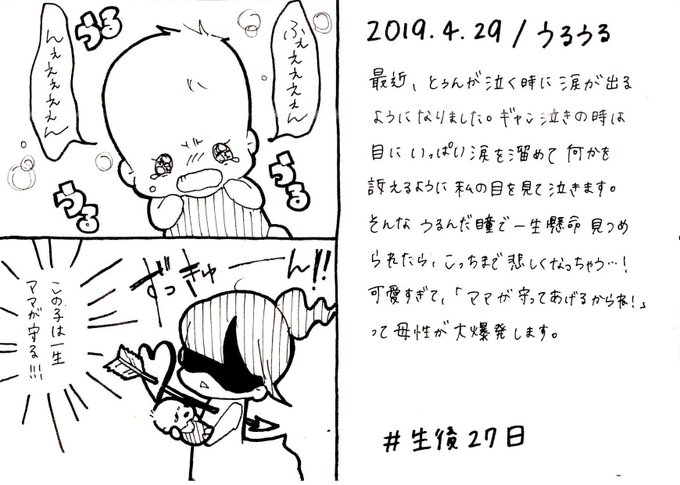 ふぇぇぇぇぇん
んぇぇぇぇぇん
うる
うる
うる
うる
ずっきゅ
ん!!
この子は一生
ママが守る!!!
2019.4.29/うるうる
最近、とぅんが泣く時に涙が出る
ようになりました。ギャン泣きの時は
目にいっぱい涙を溜めて何かを
訴えるように私の目を見て泣きます。
そんなうるんだ瞳で一生懸命見つめ
られたら、こっちまで悲しくなっちゃう…!
可愛すぎて、「ママが守ってあげるからね!」
って母性が大爆発します。
#生後27日